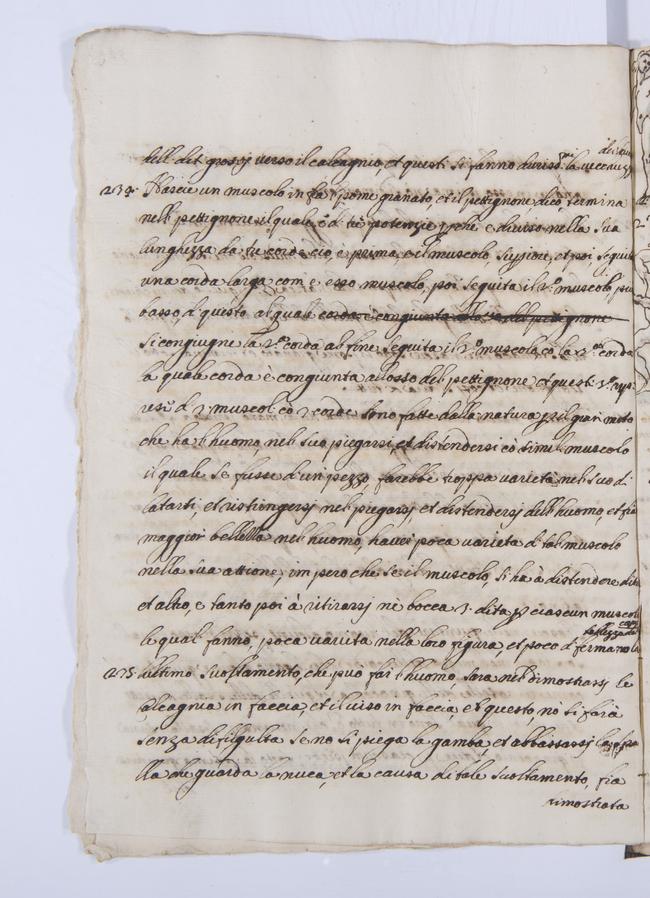 dell. det grossj verso il calcagnio, et questi si fanno durissmi. la
234. Nascie un muscolo in fra 'l pome granato, et il pettignone, dico, termina
nel pettignone, il quale è di tre potenzie perche è diviso nella sua
lunghezza da tre corde cio, è prima, è il muscolo supiore, et poi seguita
una corda larga com e esso muscolo, poi seguita il 2º. muscolo, piu
basso, d' questo al quale corda è congiunta allosso del pettignone
si congiugne la 2ª. corda al fine seguita il 3º. muscolo, cò la corda
la quale corda è congiunta allosso del pettignone, et questi
di 3 muscoli cò 3 corde sono fatte dalla natura p il gran moto
che ha l' huomo, nel suo piegarsi, et distendersi cò simil muscolo
il quale se fusse d' un pezzo, farebbe troppa varietà, nel suo di
latarsi, et ristrignersj nel piegarsj, et distendersj dell' huomo, et fia
maggior bellezza nel huomo, haver poca varieta di tal muscolo
nella sua attione, impero che se il muscolo, si ha à distendere dita
et altro, e tanto poi à ritirarsj nè tocca 3. dita p ciascun muscolo
le qual' fanno, poca varietà nella loro figura, et poco d
235. L'ultimo svoltamento, che può far l' huomo, sara nel dimostrarsj le
calcagnia in faccia, et il viso in faccia, et questo, nò si farà
senza difficulta se no si piega la gamba, et abbassarsj la spa
lla che guarda la nuca, et la causa di tale svoltamento, fia
dimostrata